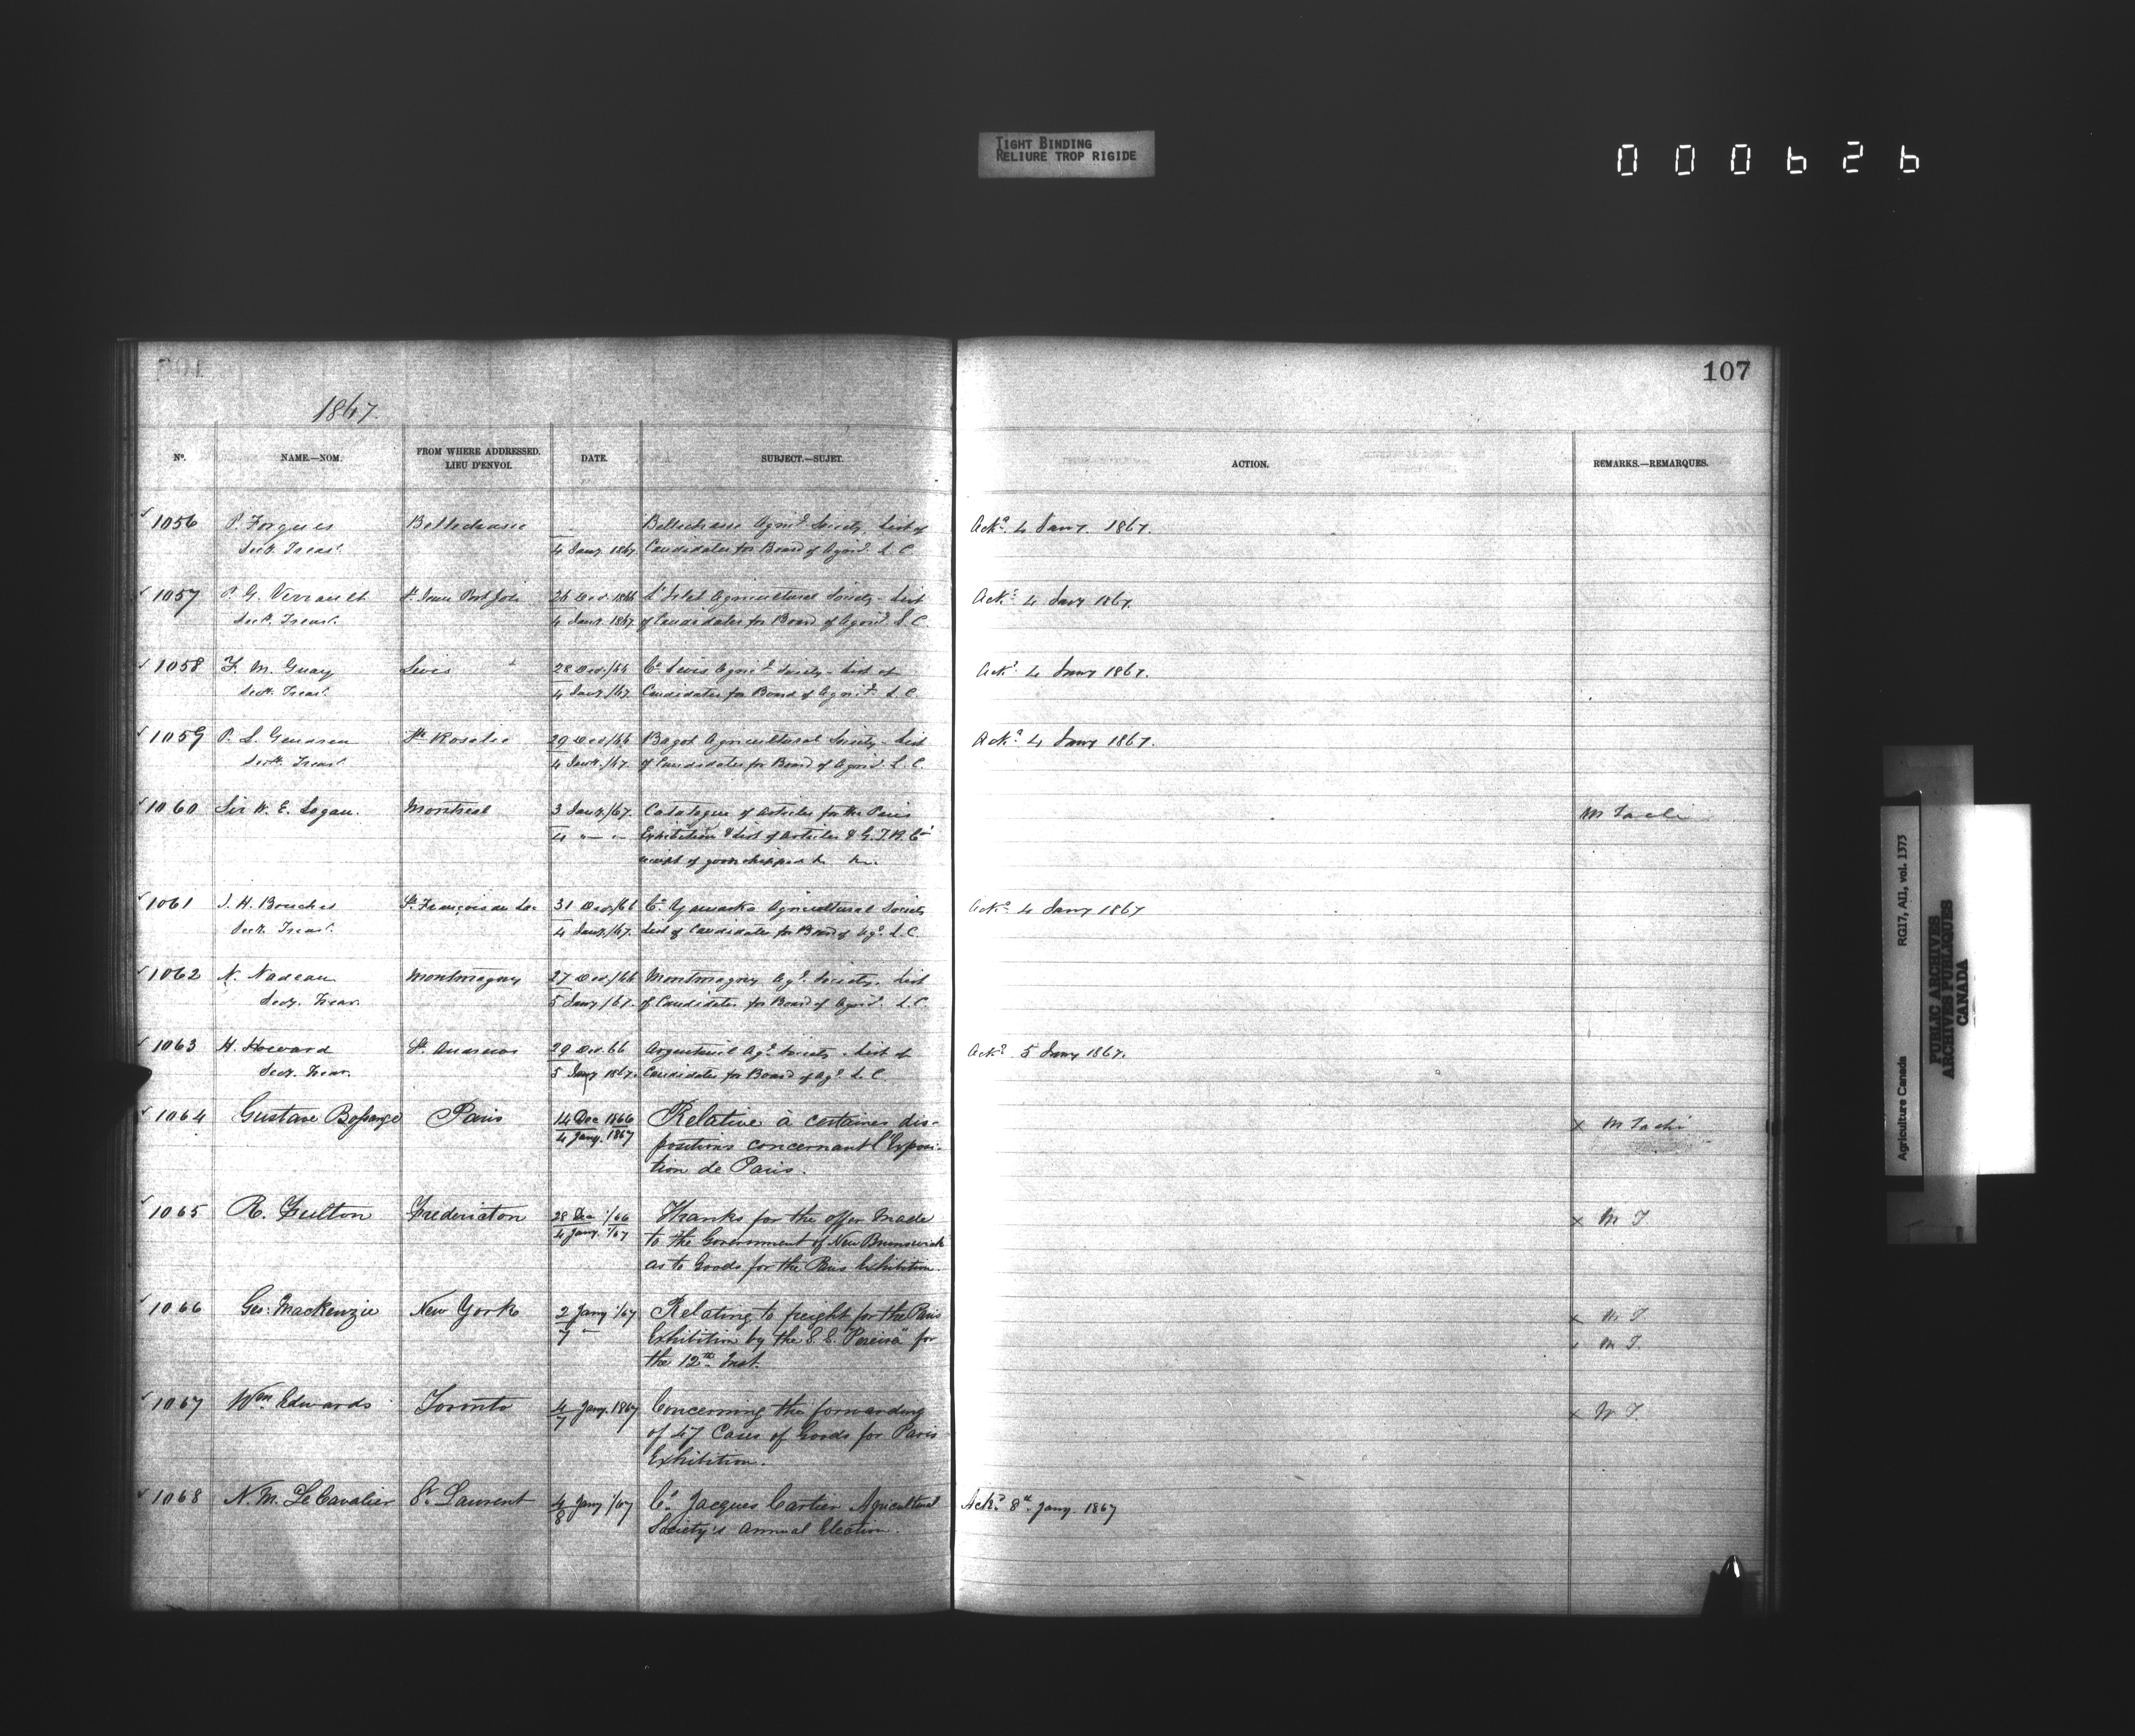 TIGHT BINDING
RELIURE TROP RIGIDE
000626
107
1867.
No. NAME.—NOM. FROM WHERE ADDRESSED. LIEU D'ENVOI. DATE. SUBJECT.—SUJET. ACTION. REMARKS.—REMARQUES.
1056 P. Forgues Bellechasse Bellechasse Agricl. Society. List of Ackd. 4 Jany. 1867.
Secy. Treasr. 4 Jany. 1867. Candidates for Board of Agricl. L. C.
1057 P. G. Verreault St. Jean Port Joli 26 Decr. 1866 L'Islet Agricultural Society - List Ackd. 4 Jany 1867.
Secy. Treasr. 4 Jany. 1867 of Candidates for Board of Agricl. L. C.
1058 F. M. Guay Levis 28 Decr./66 Co. Levis Agricl. Society - List of Ackd. 4 Jany 1867.
Secy. Treasr. 4 Jany./67. Candidates for Board of Agricl. L. C.
1059 P. S. Gendron Ste Rosalie 29 Decr./66 Bagot Agricultural Society - List Ackd. 4 Jany 1867.
Secy. Treasr. 4 Jany./67. of Candidates for Board of Agricl. L. C.
1060 Sir W. E. Logan. Montreal 3 Jany./67. Catalogue of articles for the Paris M Taché
4 " " Exhibition & List of articles & G. T. R. Co's
receipt of goods shipped
1061 J. H. Boucher St. François du Lac 31 Decr./66 Co. Yamaska Agricultural Society Ackd. 4 Jany 1867
Secy. Treasr. 4 Jany./67. List of Candidates for Board of Agl. L. C.
1062 N. Nadeau Montmagny 27 Decr./66 Montmagny Agl. Society. List
Secy. Treasr. 5 Jany/67. of Candidates for Board of Agricl. L. C.
1063 H. Howard St. Andrews 29 Dec. 66 Argenteuil Agl. Society. List of Ackd. 5 Jany 1867.
Secy. Treasr. 5 Jany 1867. Candidates for Board of Agl. L. C.
1064 Gustave Bossange Paris 14 Dec 1866 Relative à certaines dis- x M Taché
4 Jany. 1867 positions concernant l'Exposi-
tion de Paris.
1065 R. Fulton Fredericton 28 Dec /66 Thanks for the offer made x M T.
4 Jany. /67 to the Government of New Brunswick
as to Goods for the Paris Exhibition.
1066 Geo: Mackenzie New York 2 Jany /67 Relating to freight for the Paris x M T.
7 " Exhibition by the S. S. "Pereira" for x M T.
the 12th Inst.
1067 Wm Edwards Toronto 4 Jany. 1867 Concerning the forwarding x M T.
7 of 47 Cases of Goods for Paris
Exhibition.
1068 N. M. LeCavalier St. Laurent 4 Jany /67 Co. Jacques Cartier Agricultural Ackd. 8th. Jany. 1867
8 Society's annual Election.
Agriculture Canada RG17, AII, vol. 1373
PUBLIC ARCHIVES
ARCHIVES PUBLIQUES
CANADA